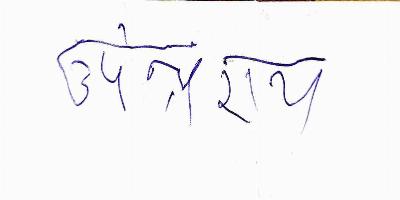 उपेन्द्र राय